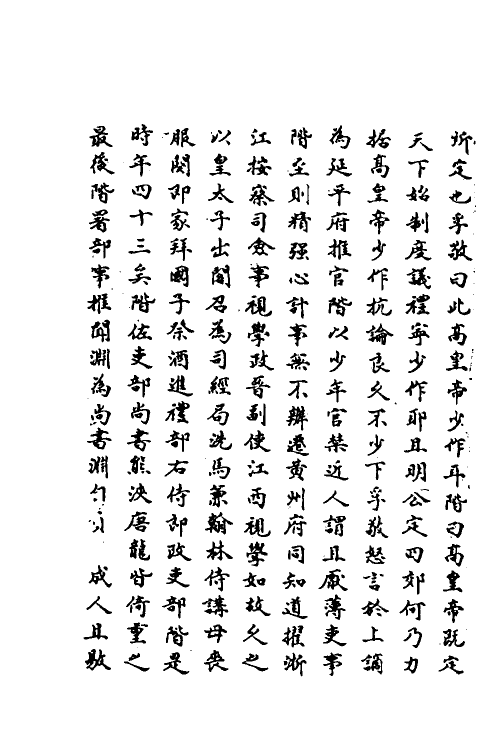 所定也孚敬曰此高皇帝少作耳階曰高皇帝既定
天下始制度議禮寧少作耶且明公定四郊何乃力
据高皇帝少作抗論良久不少下孚敬怒言於上謫
為延平府推官階以少年官禁近人謂且厭薄吏事
階至則精强心計事無不辦遷黄州府同知道擢浙
江按察司僉事視學政晉副使江西視學如故久之
以皇太子出閣召為司經局洗馬兼翰林侍講母喪
服闋即家拜國子祭酒進禮部右侍郎改吏部階是
時年四十三矣階佐吏部尚書熊浹唐龍皆倚重之
最後階署部事推聞淵為尚書淵 成人且敭